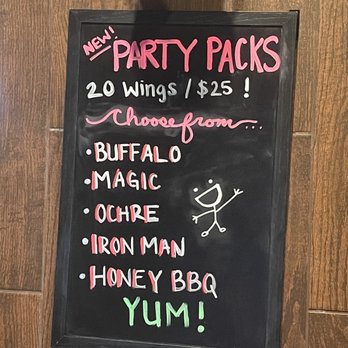 NEW!
PARTY PACKS
20 Wings / $25 !
Choose from...
• BUFFALO
• MAGIC
• OCHRE
• IRON MAN
• HONEY BBQ
YUM!